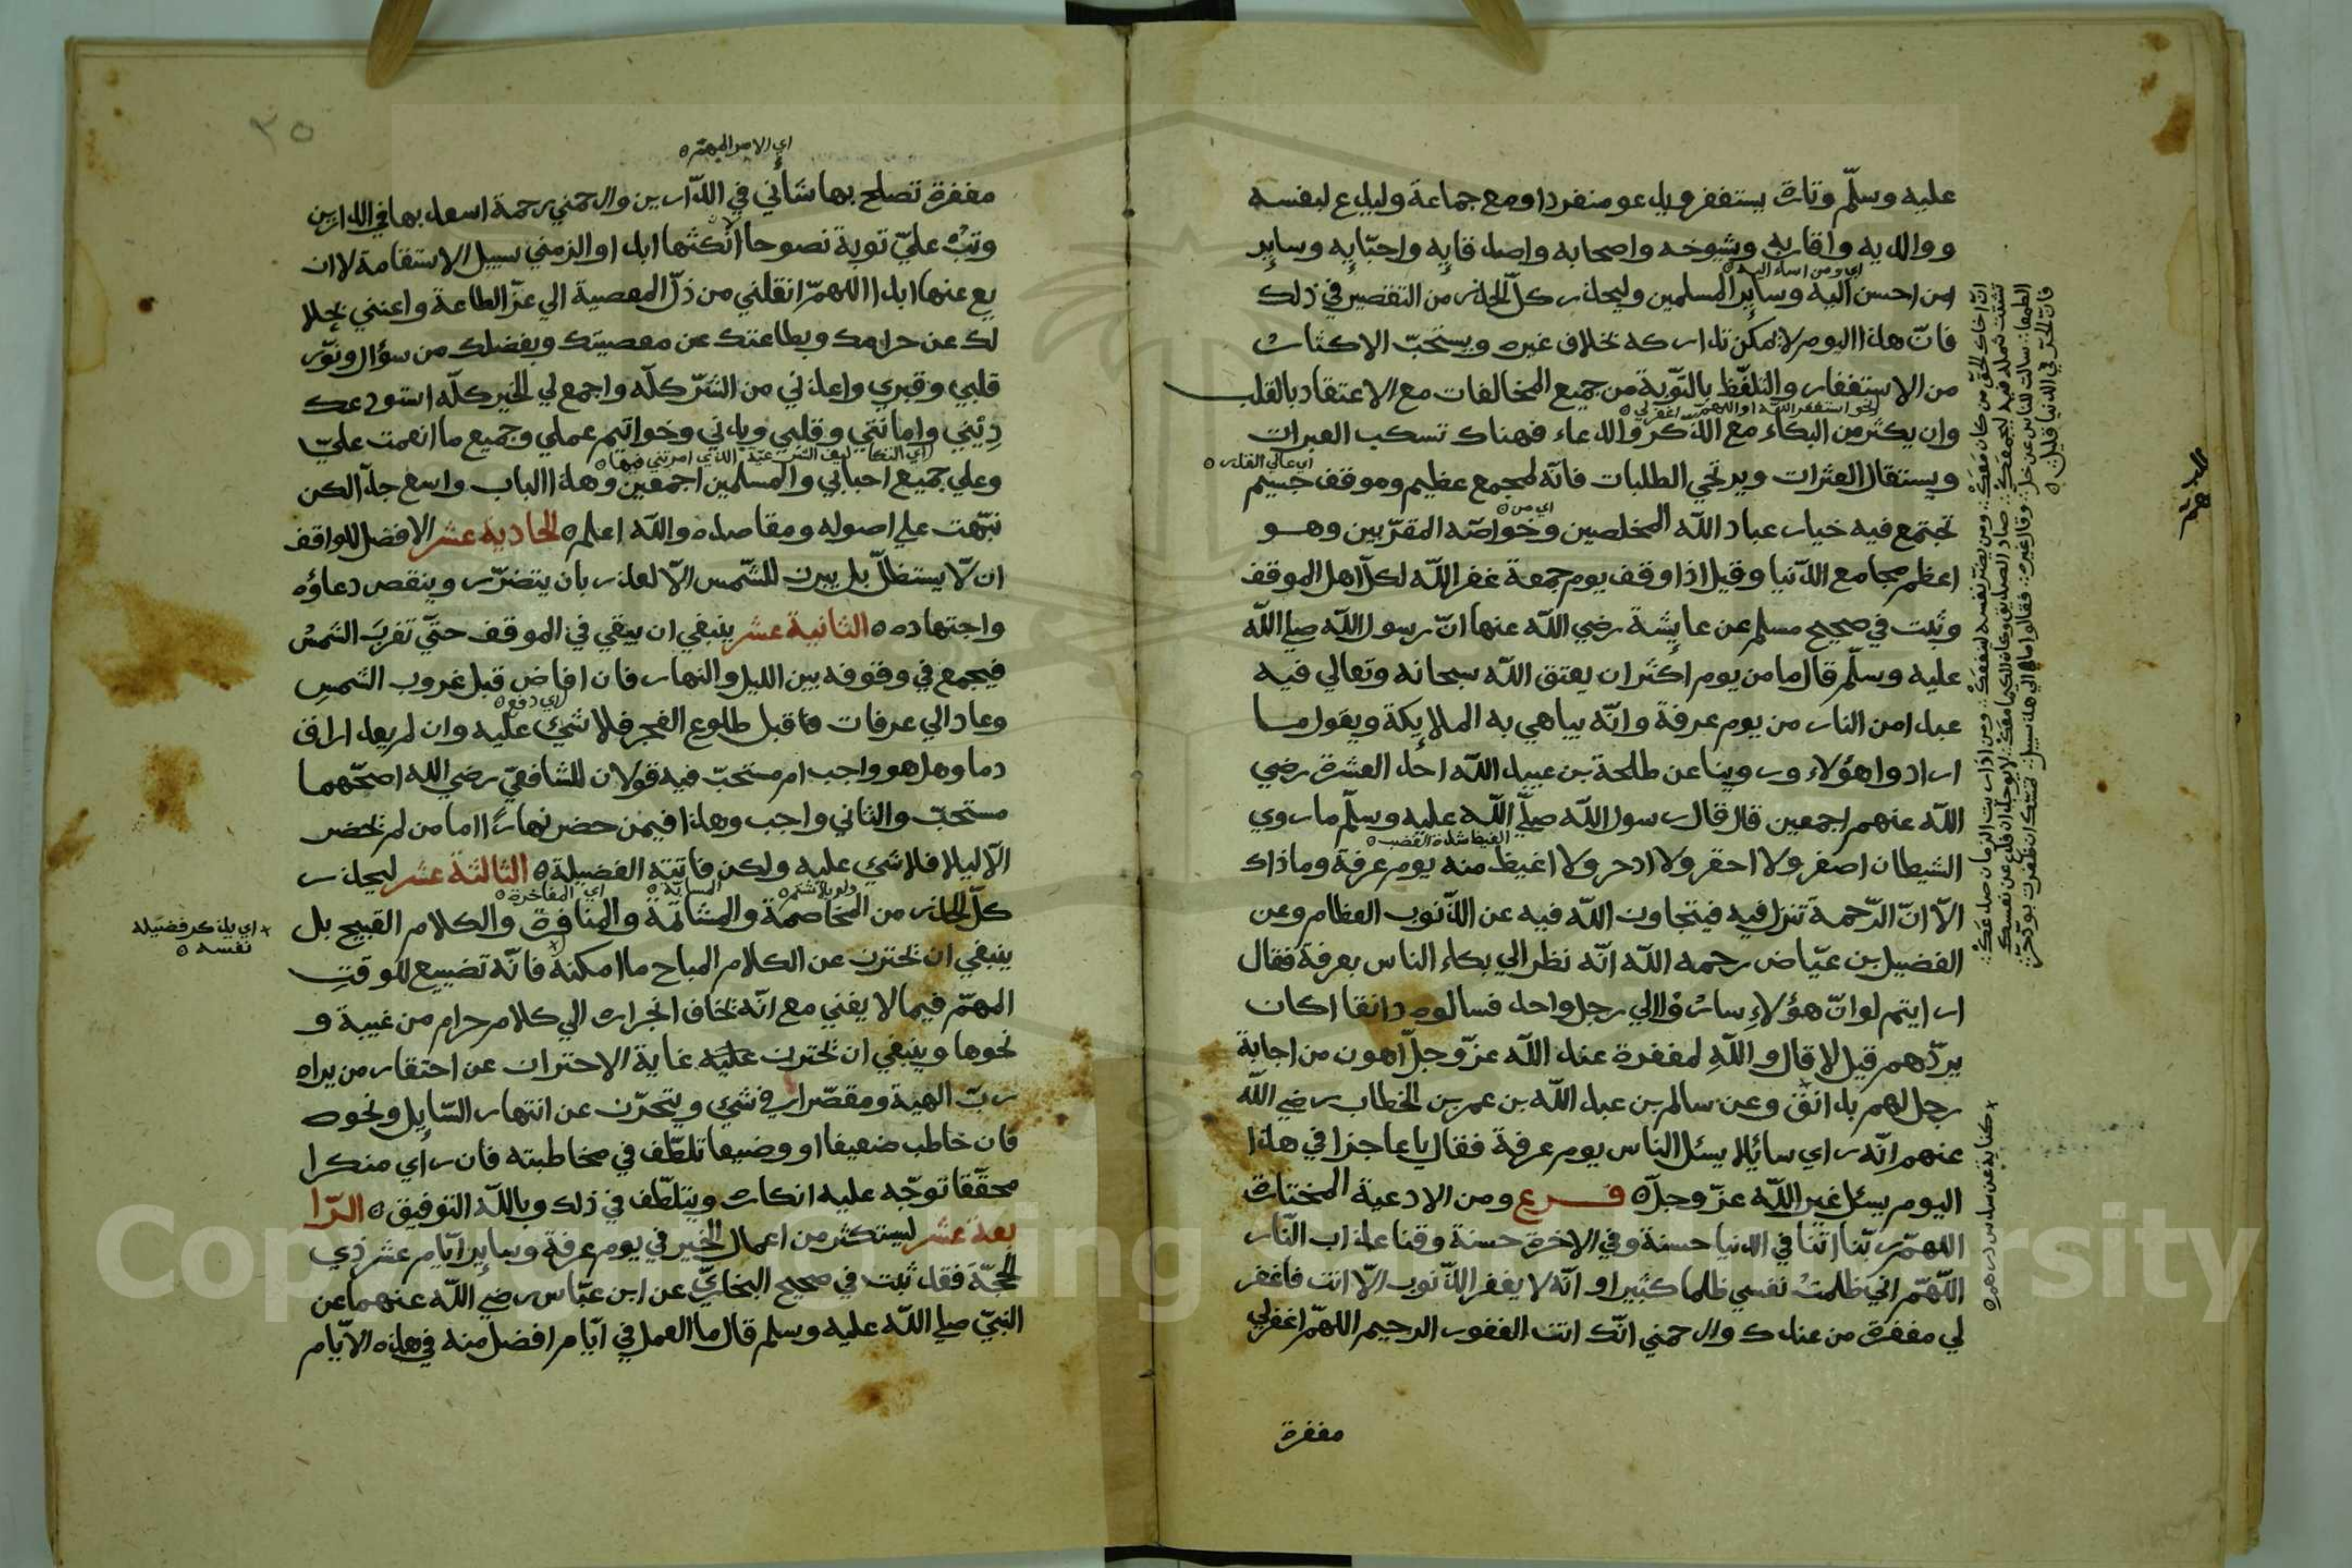 عليه وسلّم وتارة يستغفر ويدعو منفردا ومع جماعة وليدع لنفسه
ووالديه واقاربه وشيوخه واصحابه واصدقايه واحبّايه وساير
من احسن اليه وساير المسلمين وليحذر كلّ الحذر من التقصير في ذلك
اي ومن اساء اليه
فانّ هذا اليوم لا يمكن تداركه بخلاف غيره ويستحبّ الاكثار
من الاستغفار والتلفّظ بالتّوبة من جميع المخالفات مع الاعتقاد بالقلب
نحو استغفر الله او اللهمّ اغفر لي
وان يكثر من البكاء مع الذّكر والدعاء فهناك تسكب العبرات
ويستقال العثرات ويرتجي الطلبات فانّه لمجمع عظيم وموقف جسيم
اي عالي القدر
تجتمع فيه خيار عباد الله المخلصين وخواصّه المقرّبين وهو
اي من
اعظم مجامع الدّنيا وقيل اذا وقف يوم جمعة غفر الله لكلّ اهل الموقف
وثبت في صحيح مسلم عن عايشة رضي الله عنها انّ رسول الله صلي الله
عليه وسلّم قال ما من يوم اكثر ان يعتق الله سبحانه وتعالي فيه
عبدا من النار من يوم عرفة وانّه يباهي به الملايكة ويقول ما
اراد وا هؤلاء وروينا عن طلحة بن عبيد الله احد العشرة رضي
الله عنهم اجمعين قال قال رسول الله صلّي الله عليه وسلّم ما روي
الشيطان اصغر ولا احقر ولا ادحر ولا اغيظ منه يوم عرفة وما ذاك
الغيظ شدة الغضب
الّا انّ الرّحمة تنزل فيه فيتجاوز الله فيه عن الذّنوب العظام وعن
الفضيل بن عيّاض رحمه الله انّه نظر الي بكاء الناس بعرفة فقال
ارايتم لو انّ هؤلاء ساروا الي رجل واحد فسالوه دانقا اكان
يردّهم قيل لا قال والله لمغفرة عند الله عزّ وجلّ اهون من اجابة
رجل لهم بدانق وعن سالم بن عبد الله بن عمر بن الخطاب رضي الله
عنهم انّه راي سائلا يسئل الناس يوم عرفة فقال يا عاجز افي هذا
اليوم يسئل غير الله عزّ وجلّ فرع ومن الادعية المختارة
اللهمّ ربّنا اتنا في الدنيا حسنة وفي الاخرة حسنة وقنا عذاب النّار
اللّهمّ انّي ظلمت نفسي ظلما كثيرا وانّه لا يغفر الذّنوب الّا انت فاغفر
لي مغفرة من عندك وارحمني انّك انت الغفور الرحيم اللهمّ اغفر لي
مغفرة
انّ اخاك الحقّ من كان معك ومن يضرّ نفسه لينفعك ومن اذا ريب الزمان صدعك
شتّت شمله فيه ليجمعك
سالت الناس عن خلّ
فقالوا ما الي هذا سبيل تمسّك ان ظفرت بودّ حرّ
فانّ الحرّ في الدنيا قليل
كناية عن سدس درهم
٣٥
اي الامر المهمّ
مغفرة تصلح بها شأني في الدّارين وارحمني رحمة اسعد بها في الدارين
وتب عليّ توبة نصوحا لا انكثها ابدا والزمني سبيل الاستقامة لا ان
يع عنها ابدا اللهمّ انقلني من ذلّ المعصية الي عزّ الطاعة واغنني بحلا
لك عن حرامك وبطاعتك عن معصيتك وبفضلك من سواك ونوّر
قلبي وقبري واعذني من الشرّ كلّه واجمع لي الخير كلّه استودعك
ديني وامانتي وقلبي وبدني وخواتيم عملي وجميع ما انعمت عليّ
وعلي جميع احبابي والمسلمين اجمعين وهذا الباب واسع جدّا لكن
نبّهت علي اصوله ومقاصده والله اعلم الحادية عشر الافضل للواقف
ان لا يستظلّ بل يبرز للشّمس الّا لعذر بان يتضرّر وينقص دعاؤه
واجتهاده الثانية عشر ينبغي ان يبقي في الموقف حتّي تغرب الشمس
فيجمع في وقوفه بين الليل والنهار فان افاض قبل غروب الشمس
اي دفع
وعاد الي عرفات قبل طلوع الفجر فلا شيئ عليه وان لم يعد اراق
دما وهل هو واجب ام مستحبّ فيه قولان للشافعيّ رضي الله اصحّهما
مستحبّ والثاني واجب وهذا فيمن حضر نهارا اما من لم يحضر
الّا ليلا فلا شيئ عليه ولكن فاتته الفضيلة الثالثة عشر ليحذر
كلّ الحذر من المخاصمة والمشاتمة والمنافرة والكلام القبيح بل
اي المفاخرة
اي يذكر فضيلة
نفسه
ينبغي ان يحترز عن الكلام المباح ما امكنه فانّه تضييع للوقت
المهمّ فيما لا يغني مع انّه يخاف انجراره الي كلام حرام من غيبة و
نحوها وينبغي ان يحترز عليه غاية الاحتراز عن احتقار من يراه
ربّ الهيئة ومقصّرا في شيئ ويتحرّز عن انتهار السّايل ونحوه
فان خاطب ضعيفا او وضيعا تلطّف في مخاطبته فان راي منكرا
محقّقا توجّه عليه انكاره ويتلطّف في ذلك وبالله التوفيق الرّا
بعة عشر ليستكثر من اعمال الخير في يوم عرفة وساير ايّام عشر ذي
الحجّة فقد ثبت في صحيح البخاريّ عن ابن عبّاس رضي الله عنهما عن
النبيّ صلي الله عليه وسلم قال ما العمل في ايّام افضل منه في هذه الايّام